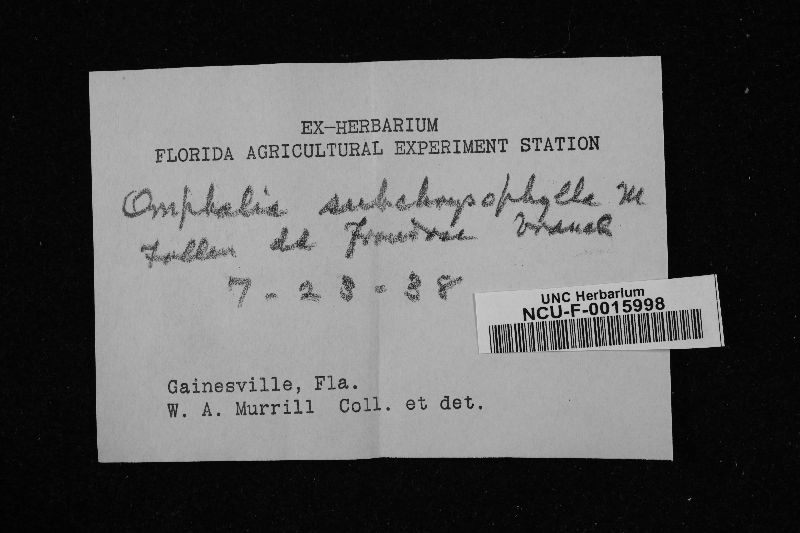 EX-HERBARIUM
FLORIDA AGRICULTURAL EXPERIMENT STATION
Omphalia subchrysophylla M
Fallen dd frondose branch
7-23-38
UNC Herbarium
NCU-F-0015998
Gainesville, Fla.
W. A. Murrill Coll. et det.